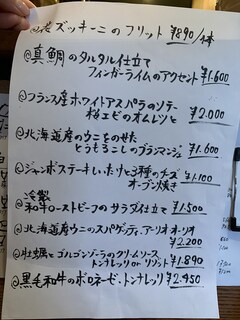 花ズッキーニのフリット ¥890/1本
◎真鯛のタルタル仕立て
フィンガーライムのアクセント ¥1.600
◎フランス産ホワイトアスパラのソテー
桜エビのオムレツと ¥2.000
◎北海道産のウニをのせた
とうもろこしのブランマンジェ ¥1.600
◎ジャンボステーキしいたけと3種のチーズ
オーブン焼き ¥1.100
◎冷製
和牛ローストビーフのサラダ仕立て ¥1.500
◎北海道産ウニのスパゲッティ、アーリオ・オーリオ
¥2.200
◎牡蠣とゴルゴンゾーラのクリームソース
トンナレッリ or リゾット ¥1.890
◎黒毛和牛のボロネーゼ・トンナレッリ ¥2.450